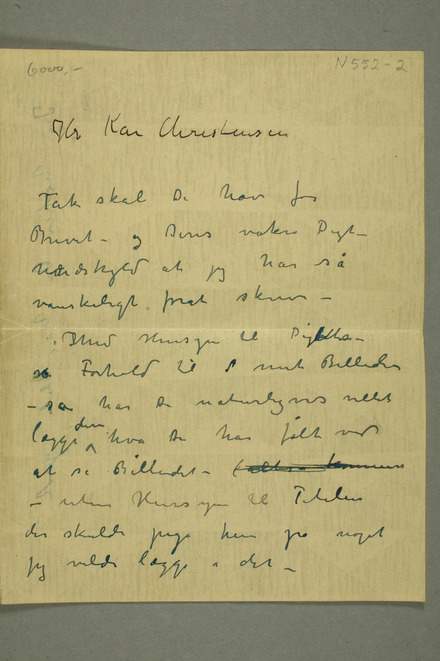 6000,-
N 552-2
Hr Kai Christensen
Tak skal De have for
Brevet - og Deres vakre Digt -
undskyld at jeg har så
vanskeligt forat skrive -
Med Hensyn til Digtets
Forhold til mit Billede
- så har De naturligvis villet
lægge den hva De har følt ved
at se Billedet -
- uden Hensyn til Titelen
der skulde pege hen på noget
jeg vilde lægge i det -